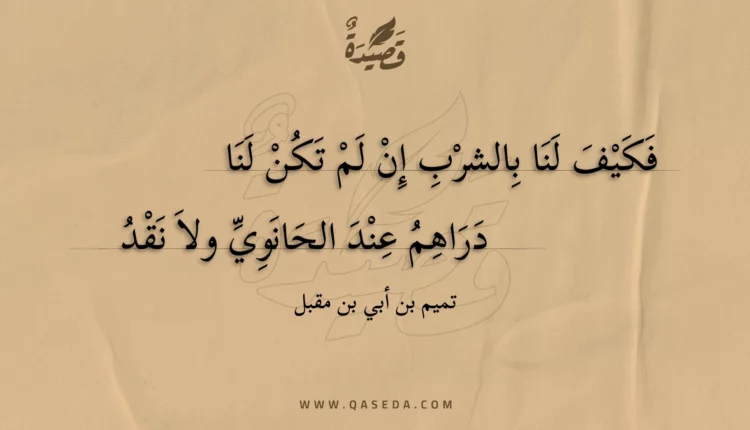 قَصِيْدَةٌ
فَكَيْفَ لَنَا بِالشرْبِ إِنْ لَمْ تَكُنْ لَنَا
دَرَاهِمُ عِنْدَ الحَانَوِيِّ ولاَ نَقْدُ
تميم بن أبي بن مقبل
WWW.QASEDA.COM